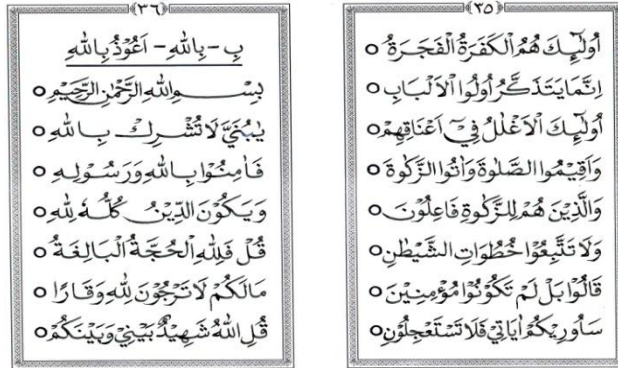 ﴿٣٥﴾
اُولٰٓئِكَ هُمُ الْكَفَرَةُ الْفَجَرَةُ ○
اِنَّمَا يَتَذَكَّرُ اُولُوا الْاَلْبَابِ ○
اُولٰٓئِكَ الْاَغْلٰلُ فِيْٓ اَعْنَاقِهِمْ ○
وَاَقِيْمُوا الصَّلٰوةَ وَاٰتُوا الزَّكٰوةَ ○
وَالَّذِيْنَ هُمْ لِلزَّكٰوةِ فَاعِلُوْنَ ○
وَلَا تَتَّبِعُوْا خُطُوَاتِ الشَّيْطٰنِ ○
قَالُوْا بَلْ لَمْ تَكُوْنُوْا مُؤْمِنِيْنَ ○
سَاُورِيْكُمْ اٰيَاتِيْ فَلَا تَسْتَعْجِلُوْنِ ○
﴿٣٦﴾
بِ - بِاللهِ - اَعُوْذُ بِاللهِ
بِسْمِ اللهِ الرَّحْمٰنِ الرَّحِيْمِ ○
يٰبُنَيَّ لَا تُشْرِكْ بِاللهِ ○
فَاٰمِنُوْا بِاللهِ وَرَسُوْلِهٖ ○
وَيَكُوْنَ الدِّيْنُ كُلُّهٗ لِلّٰهِ ○
قُلْ فَلِلّٰهِ الْحُجَّةُ الْبَالِغَةُ ○
مَالَكُمْ لَا تَرْجُوْنَ لِلّٰهِ وَقَارًا ○
قُلِ اللهُ شَهِيْدٌ بَيْنِيْ وَبَيْنَكُمْ ○